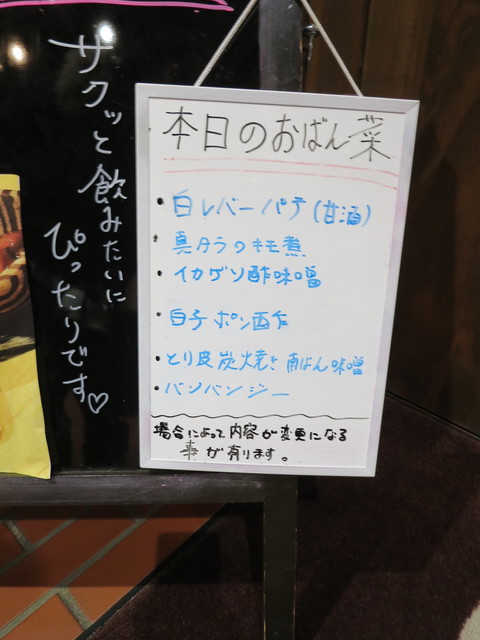 サクッと飲みたいに
ぴったりです♡
本日のおばん菜
・白レバーパテ(甘酒)
・真タラのキモ煮
・イカゲソ酢味噌
・白子ポン酢
・とり皮炭焼き 南ばん味噌
・バンバンジー
場合によって内容が変更になる
事が有ります。